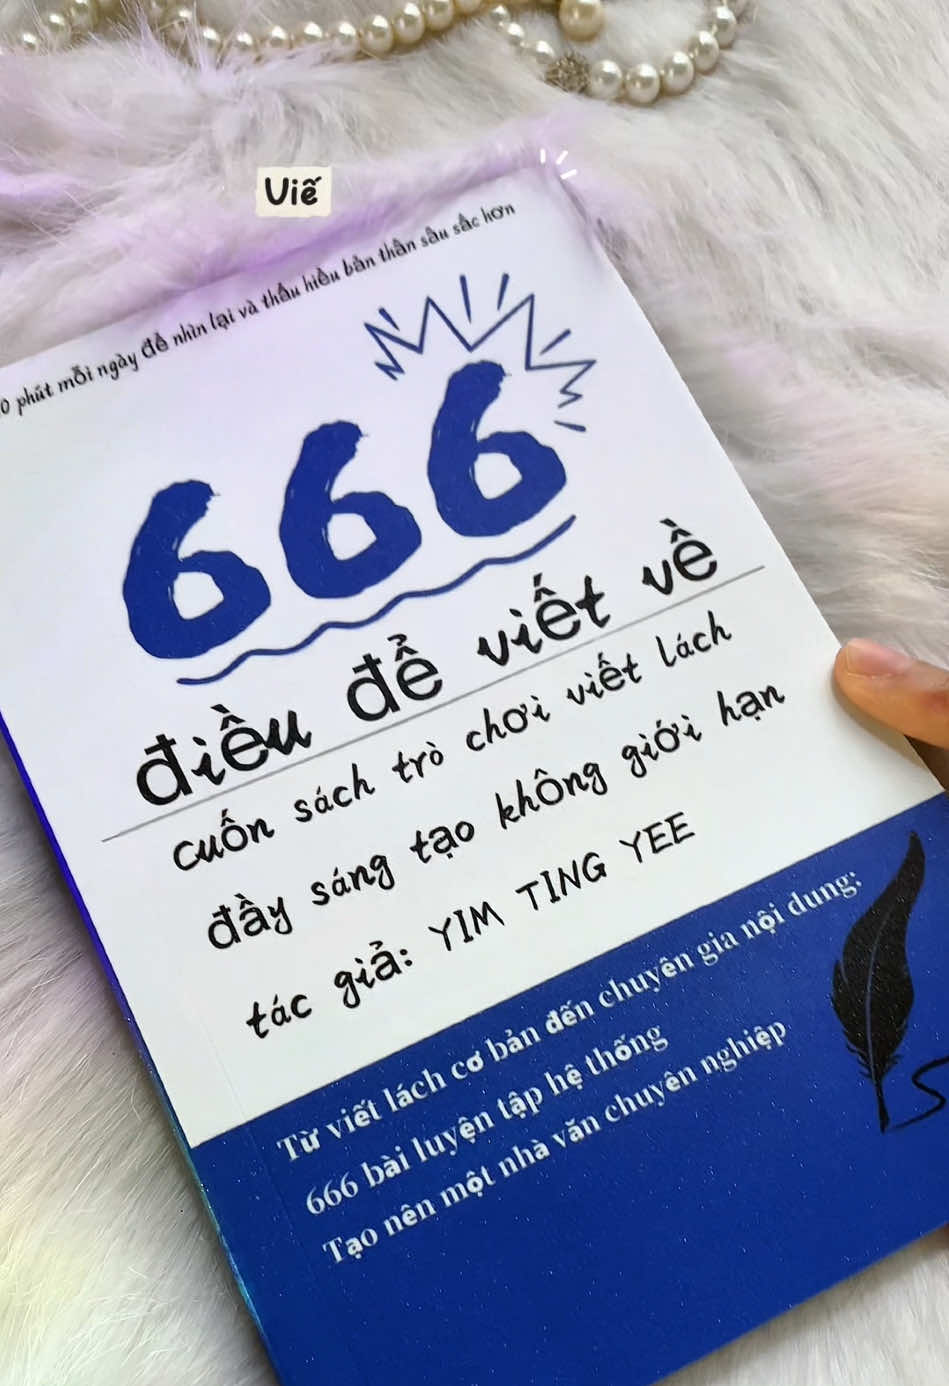 Viế
phút mỗi ngày để nhìn lại và thấu hiểu bản thân sâu sắc hơn
666
điều để viết về
cuốn sách trò chơi viết lách
đầy sáng tạo không giới hạn
tác giả: YIM TING YEE
Từ viết lách cơ bản đến chuyên gia nội dung:
666 bài luyện tập hệ thống
Tạo nên một nhà văn chuyên nghiệp